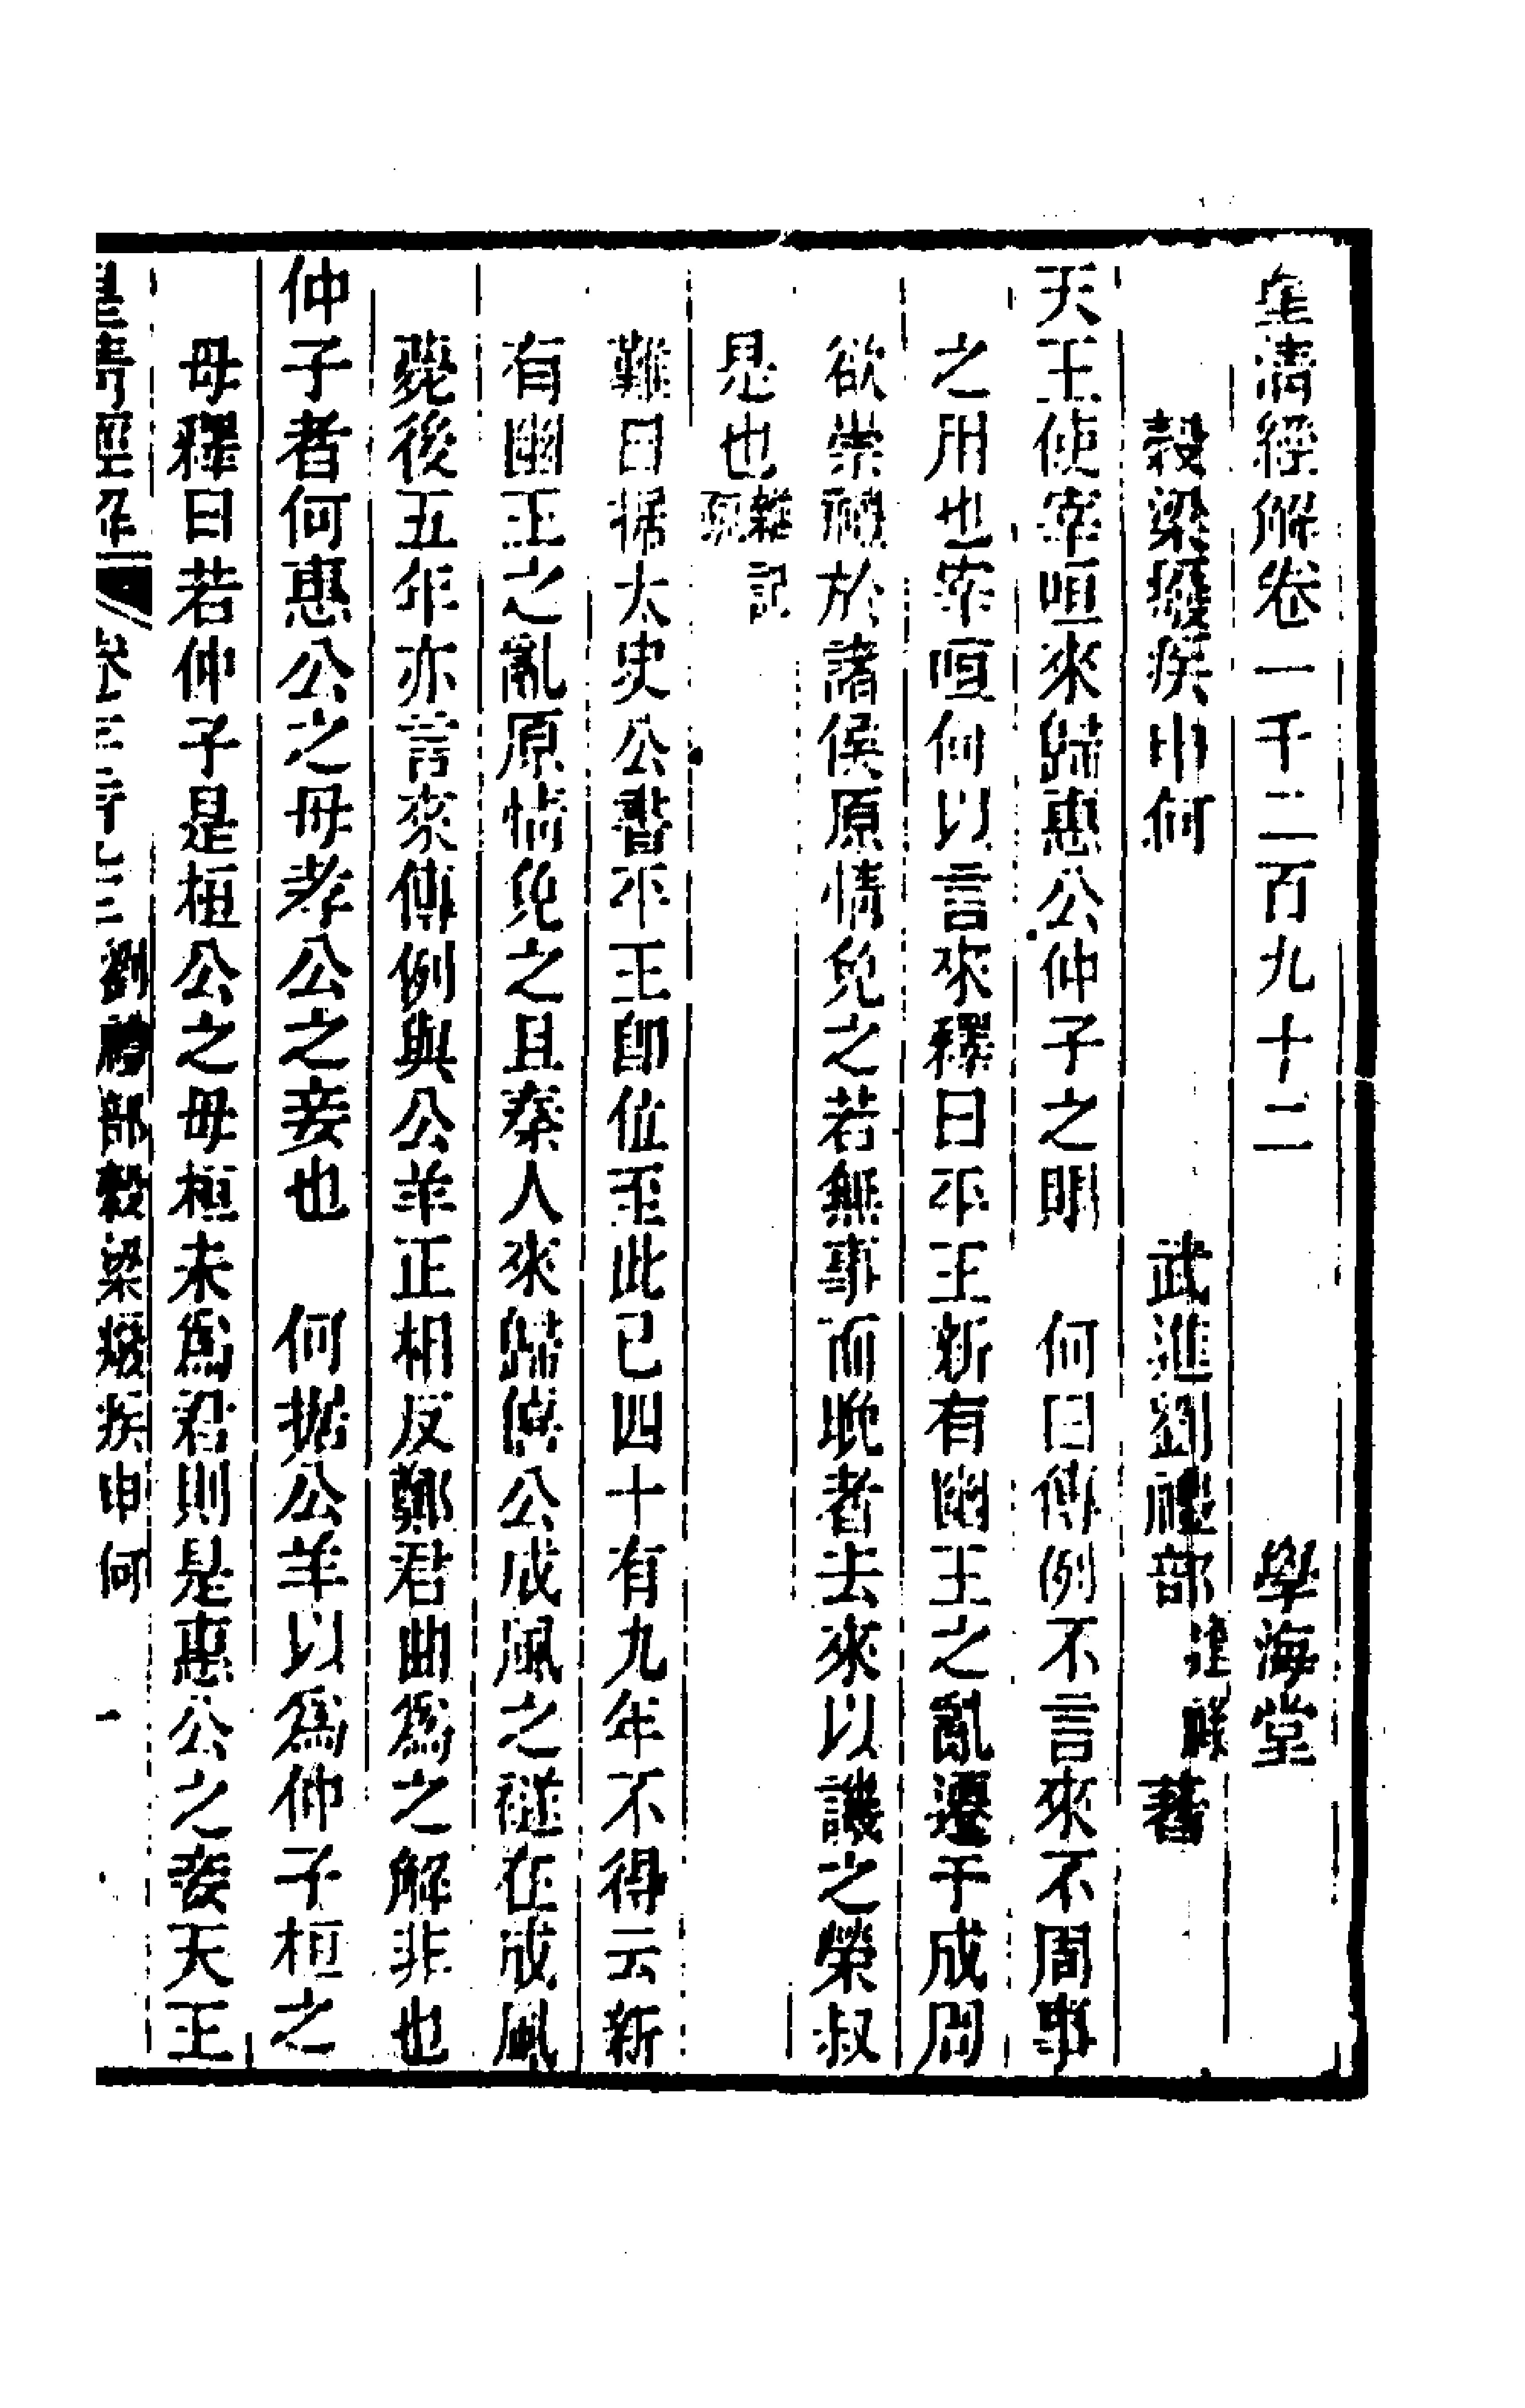 皇清經解卷一千二百九十二 學海堂
穀梁癈疾申何 武進劉禮部逢祿著
天王使宰咺來歸惠公仲子之賵 何曰傳例不言來不周事
之用也宰咺何以言來釋曰平王新有幽王之亂遷于成周
欲崇禮於諸侯原情免之若無事而晚者去來以譏之榮叔
是也雜記疏
難曰据太史公書平王卽位至此已四十有九年不得云新
有幽王之亂原情免之且秦人來歸僖公成風之襚在成風
薨後五年亦言來傳例與公羊正相反鄭君曲爲之解非也
仲子者何惠公之母孝公之妾也 何据公羊以爲仲子桓之
母釋曰若仲子是桓公之母桓未爲君則是惠公之妾天王
皇清經解 卷 劉禮部穀梁癈疾申何 一